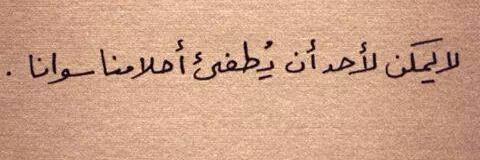 لا يمكن لأحد أن يُطفئ أحلامنا سوانا .